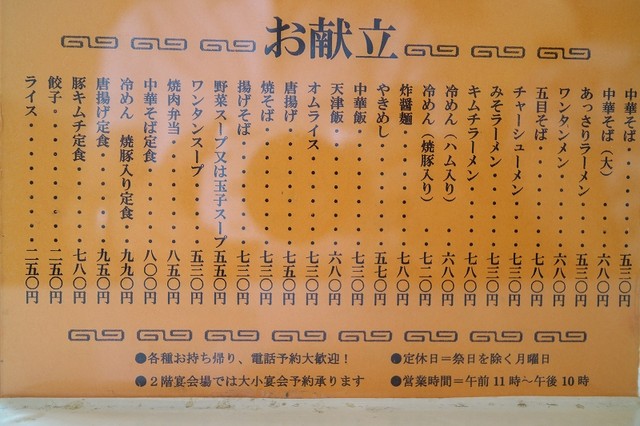 お献立
中華そば・・・・・・・五三〇円
中華そば（大）・・・・六八〇円
あっさりラーメン・・・五三〇円
ワンタンメン・・・・・七八〇円
五目そば・・・・・・・七八〇円
チャーシューメン・・・七三〇円
みそラーメン・・・・・七三〇円
キムチラーメン・・・・七三〇円
冷めん（ハム入り）・・六八〇円
冷めん（焼豚入り）・・七二〇円
炸醤麺・・・・・・・・七八〇円
やきめし・・・・・・・五七〇円
中華飯・・・・・・・・七三〇円
天津飯・・・・・・・・六八〇円
オムライス・・・・・・六八〇円
唐揚げ・・・・・・・・七五〇円
焼そば・・・・・・・・七三〇円
揚げそば・・・・・・・七三〇円
野菜スープ又は玉子スープ・五五〇円
ワンタンスープ・・・・五三〇円
焼肉弁当・・・・・・・八五〇円
中華そば定食・・・・・八〇〇円
冷めん 焼豚入り定食・・九九〇円
唐揚げ定食・・・・・・九五〇円
豚キムチ定食・・・・・七八〇円
餃子・・・・・・・・・二五〇円
ライス・・・・・・・・二五〇円
●各種お持ち帰り、電話予約大歓迎！
●２階宴会場では大小宴会予約承ります
●定休日＝祭日を除く月曜日
●営業時間＝午前11時～午後10時